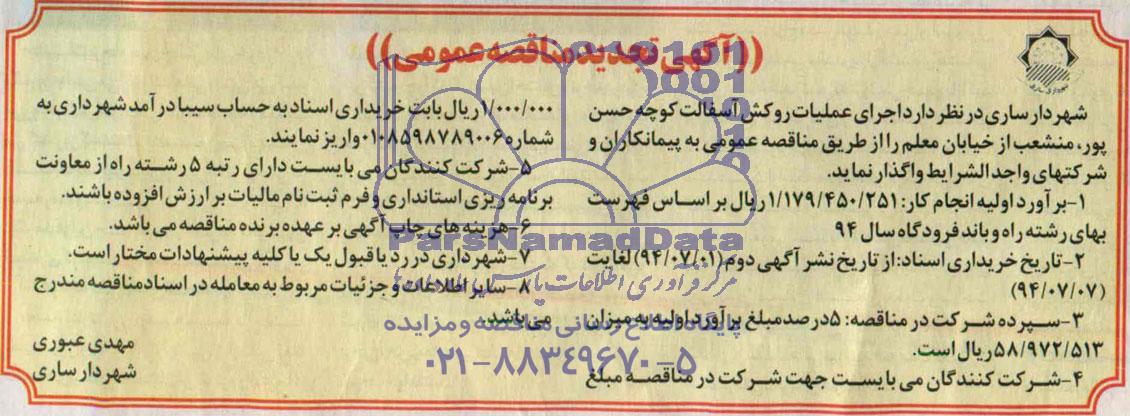 ((آگهی تجدید مناقصه عمومی))
شهردار ساری در نظر دارد اجرای عملیات روکش آسفالت کوچه حسن
پور، منشعب از خیابان معلم را از طریق مناقصه عمومی به پیمانکاران و
شرکتهای واجد الشرایط واگذار نماید.
۱-برآورد اولیه انجام کار: ۱/۱۷۹/۴۵۰/۲۵۱ ریال بر اساس فهرست
بهای رشته راه و باند فرودگاه سال ۹۴
۲-تاریخ خریداری اسناد: از تاریخ نشر آگهی دوم (۹۴/۰۷/۰۱) لغایت
(۹۴/۰۷/۰۷)
۳-سپرده شرکت در مناقصه: ۵درصد مبلغ برآورد اولیه به میزان
۵۸/۹۷۲/۵۱۳ ریال است.
۴-شرکت کنندگان می بایست جهت شرکت در مناقصه مبلغ
۱/۰۰۰/۰۰۰ ریال بابت خریداری اسناد به حساب سیبا درآمد شهرداری به
شماره ۰۱۰۸۵۹۸۷۸۹۰۰۶ واریز نمایند.
۵-شرکت کنندگان می بایست دارای رتبه ۵ رشته راه از معاونت
برنامه ریزی استانداری و فرم ثبت نام مالیات بر ارزش افزوده باشند.
۶-هزینه های چاپ آگهی بر عهده برنده مناقصه می باشد.
۷-شهرداری در رد یا قبول یک یا کلیه پیشنهادات مختار است.
۸-سایر اطلاعات و جزئیات مربوط به معامله در اسناد مناقصه مندرج
می باشد.
مهدی عبوری
شهردار ساری
ParsNamadData
مرکز فرآوری اطلاعات پارس نماد داده ها
پایگاه اطلاع رسانی مناقصه و مزایده
۰۲۱-۸۸۳۴۹۶۷۰-۵